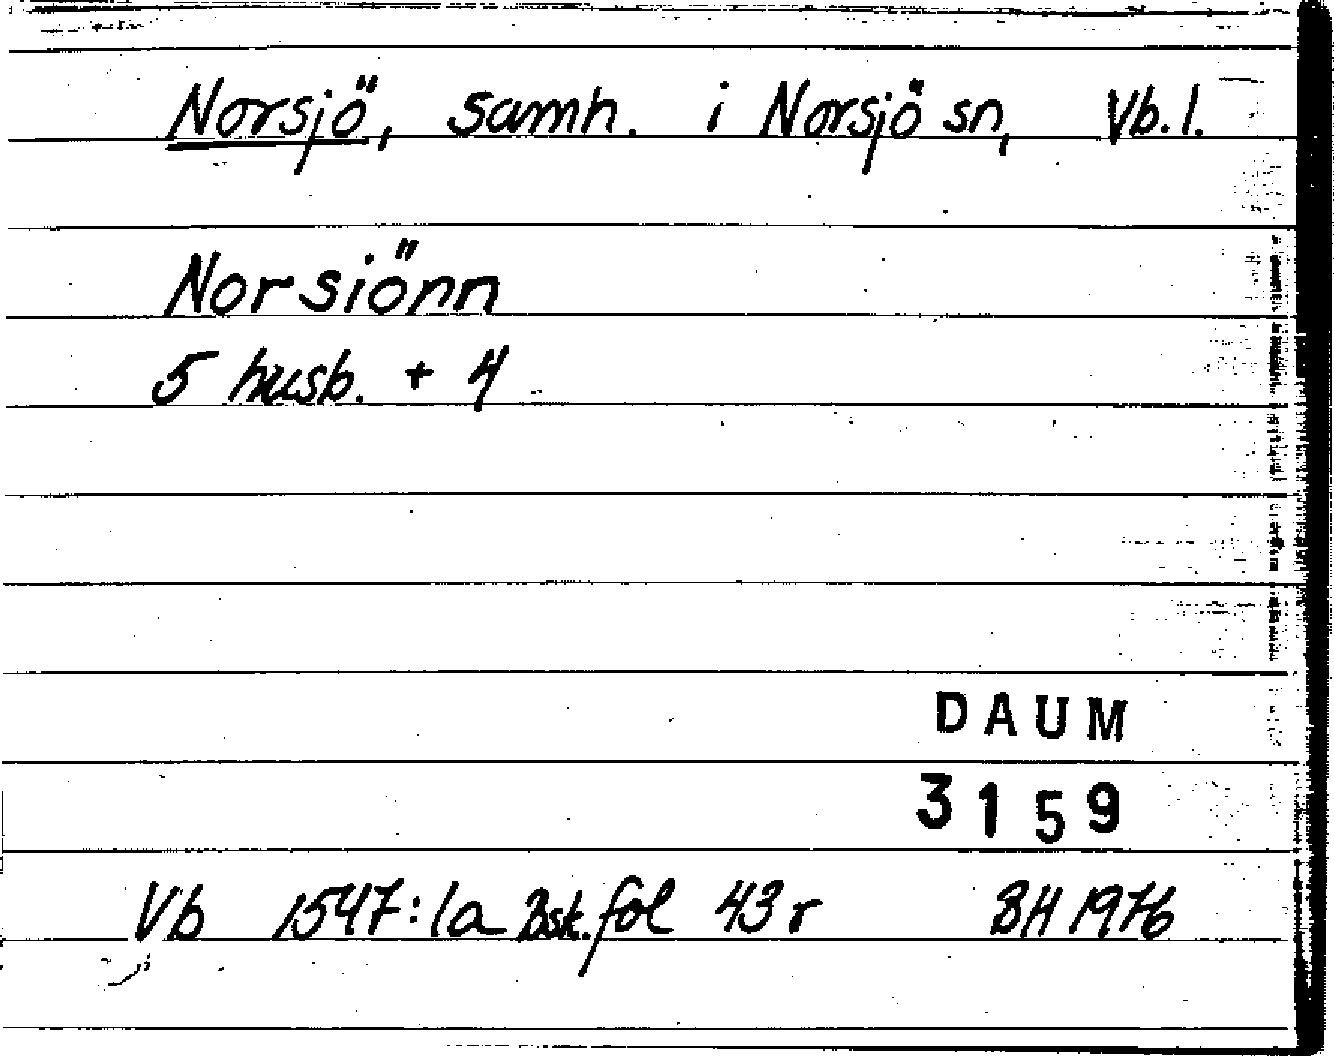 Norsjö, samh. i Norsjö sn, Vb. l.
Norsiönn
5 husb. + 4
DAUM
3159
Vb 1547:1a Bsk. fol 43 r BH 1976